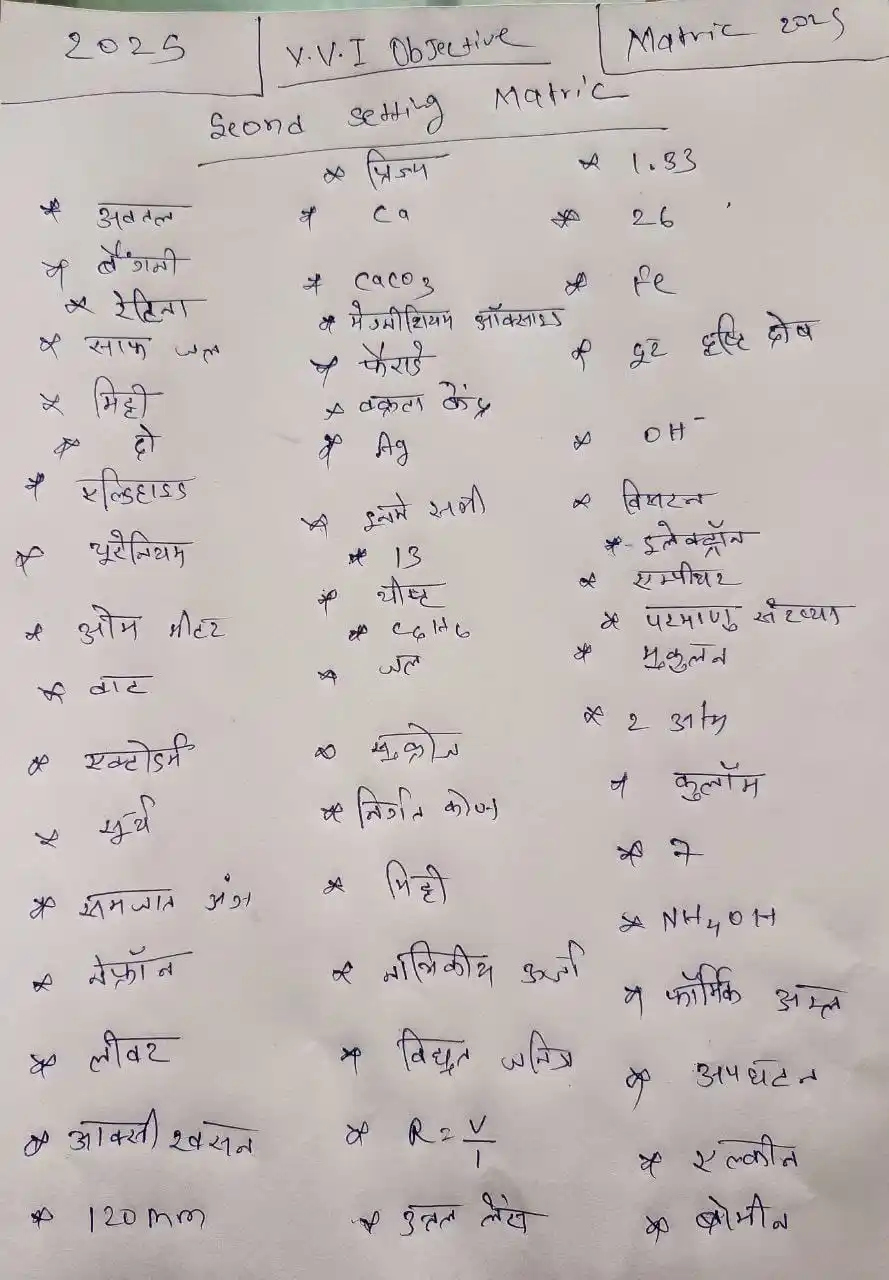 2025
V.V.I Objective
Matric 2025
Seond setting Matric
* अवतल
* बैंगनी
* रेटिना
* साफ जल
* मिट्टी
* दो
* एल्डिहाइड
* यूरेनियम
* ओम मीटर
* वाट
* एक्टोडर्म
* सूर्य
* समजात अंग
* नेफ्रॉन
* लीवर
* ऑक्सी श्वसन
* 120 mm
* प्रिज्म
* Ca
* CaCO3
* मैग्नीशियम ऑक्साइड
* फैराडे
* वक्रता केंद्र
* Ag
* इनमे सभी
* 13
* यीस्ट
* C6H6
* जल
* सुक्रोज
* निर्गत कोण
* मिट्टी
* नाभिकीय ऊर्जा
* विद्युत जनित्र
* R = V/I
* उत्तल लेंस
* 1.33
* 26
* Fe
* दूर दृष्टि दोष
* OH-
* विघटन
* इलेक्ट्रॉन
* एम्पीयर
* परमाणु संख्या
* मुकुलन
* 2 ओम
* कुलॉम
* 7
* NH4OH
* फॉर्मिक अम्ल
* अपघटन
* एल्कीन
* ब्रोमीन